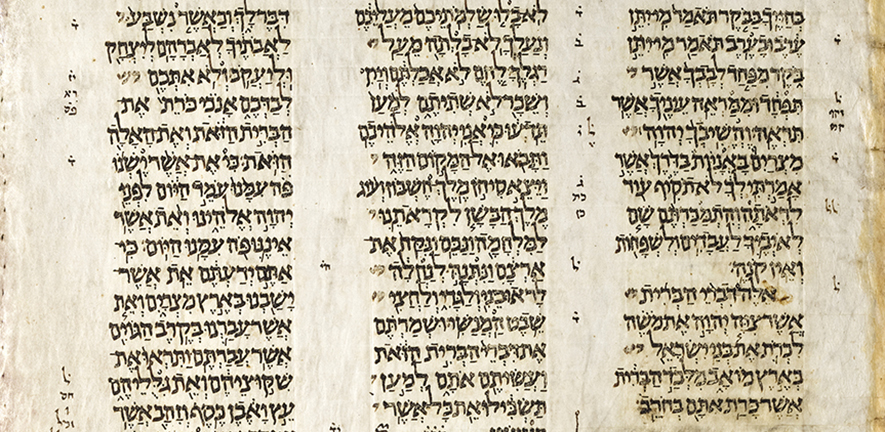 בחייך בבקר תאמר מי יתן
ערב ובערב תאמר מי יתן
בקר מפחד לבבך אשר
תפחד וממראה עיניך אשר
תראה והשיבך יהוה
מצרים באניות בדרך אשר
אמרתי לך לא תסיף עוד
לראתה והתמכרתם שם
לאיביך לעבדים ולשפחות
ואין קנה
אלה דברי הברית
אשר צוה יהוה את משה
לכרת את בני ישראל
בארץ מואב מלבד הברית
אשר כרת אתם בחרב
לא בלו שלמתיכם מעליכם
ונעלך לא בלתה מעל
רגלך לחם לא אכלתם ויין
ושכר לא שתיתם למען
תדעו כי אני יהוה אלהיכם
ותבאו אל המקום הזה
ויצא סיחן מלך חשבון ועוג
מלך הבשן לקראתנו
למלחמה ונכם ונקח את
ארצם ונתנה לנחלה
לראובני ולגדי ולחצי
שבט המנשי ושמרתם
את דברי הברית הזאת
ועשיתם אתם למען
תשכילו את כל אשר
דבר לך וכאשר נשבע
לאבתיך לאברהם ליצחק
וליעקב ולא אתכם
לבדכם אנכי כרת את
הברית הזאת ואת האלה
הזאת כי את אשר ישנו
פה עמנו עמד היום לפני
יהוה אלהינו ואת אשר
איננו פה עמנו היום כי
אתם ידעתם את אשר
ישבנו בארץ מצרים ואת
אשר עברנו בקרב הגוים
אשר עברתם ותראו את
שקוציהם ואת גלליהם
עץ ואבן כסף וזהב אשר